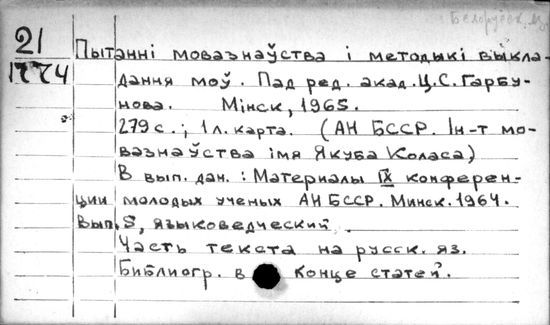 Белорусск. яз.
21
1774
Пытанні мовазнаўства і методыкі выкла-
дання моў. Пад ред. акад. Ц.С. Гарбу-
нова. Мінск, 1965.
279 с.; 1 л. карта. (АН БССР. Ін-т мо-
вазнаўства імя Якуба Коласа)
В вып. дан.: Материалы IX конферен-
ции молодых ученых АН БССР. Минск. 1964.
Вып. 5, языковедческий.
Часть текста на русск. яз.
Библиогр. в конце статей.